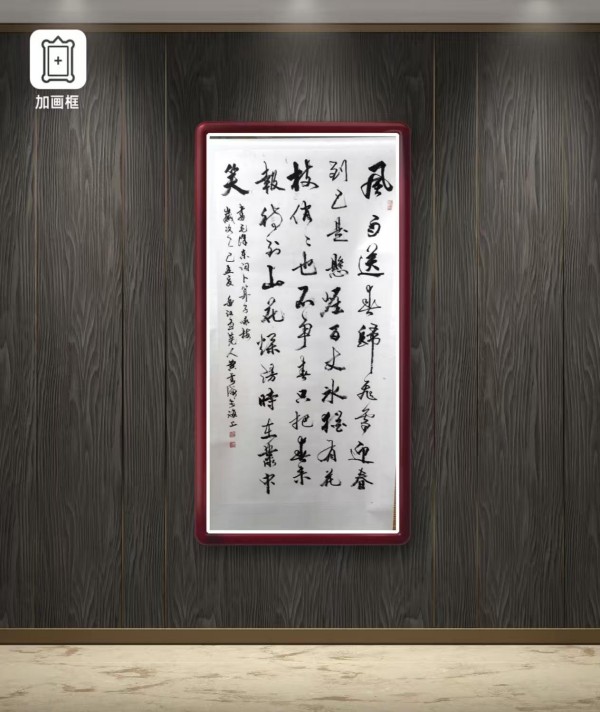 加画框
風雨送春歸飛雪迎春
到已是懸崖百丈冰猶有花
枝俏〻也不争春只把春来
報待到山花爛漫時在叢中
笑
毛澤東詞卜算子咏梅
歲次乙巳